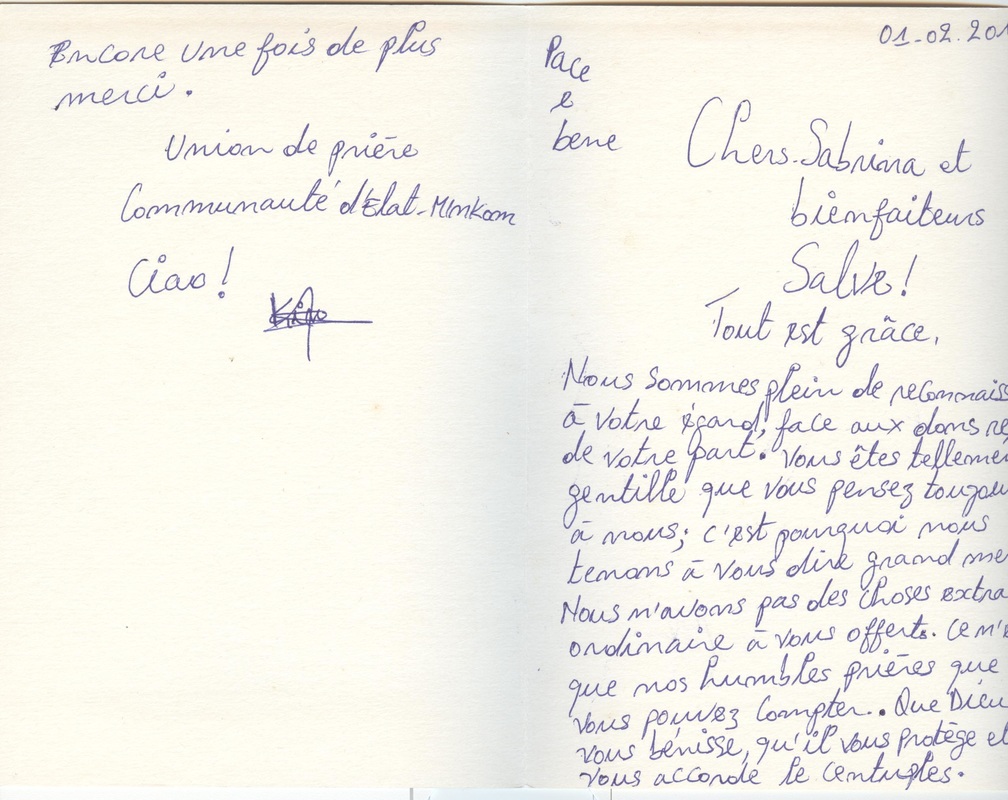 Encore une fois de plus
merci.
Union de prière
Communauté d'Elat-Minkom
Ciao!
01-02.201
Pace
e
bene
Chers Sabrina et
bienfaiteurs
Salve!
Tout est grâce,
Nous sommes plein de reconnaiss
à votre égard, face aux dons re
de votre part. Vous êtes telleme
gentille que vous pensez toujou
à nous; c'est pourquoi nous
tenons à vous dire grand me
Nous n'avons pas des choses extra
ordinaire à vous offerts. Ce n'e
que nos humbles prières que
vous pouvez compter.. Que Dieu
vous bénisse, qu'il vous protège et
vous accorde le centuples.